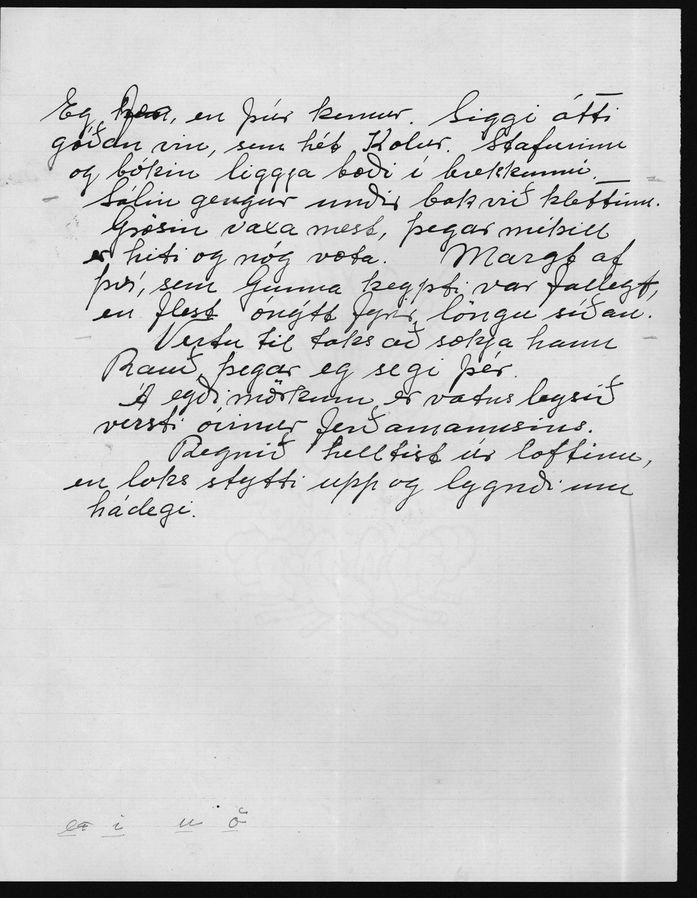 Eg les, en þúr kemur. Siggi átti
góðan vin, sem hét Kolur. Stafurinn
og bókin liggja bæði í brekkunni.
Sólin gengur undir bak við klettinn.
Grösin vaxa mest, þegar mikill
er hiti og nóg væta. Margt af
því, sem Gunna keypti var fallegt,
en flest ónýtt fyrir löngu síðan.
Vertu til taks að sækja hann
Rauð, þegar eg segi þér.
Á eyðimörkum er vatnsleysið
versti óvinur ferðamannsins.
Regnið helltist úr loftinu,
en loks stytti upp og lygndi um
hádegi.
æ i u ö